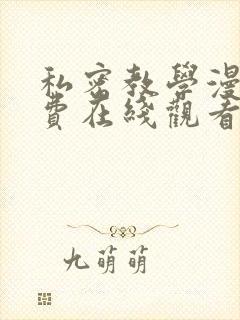 私密教學漫
費在綫觀看
九萌萌